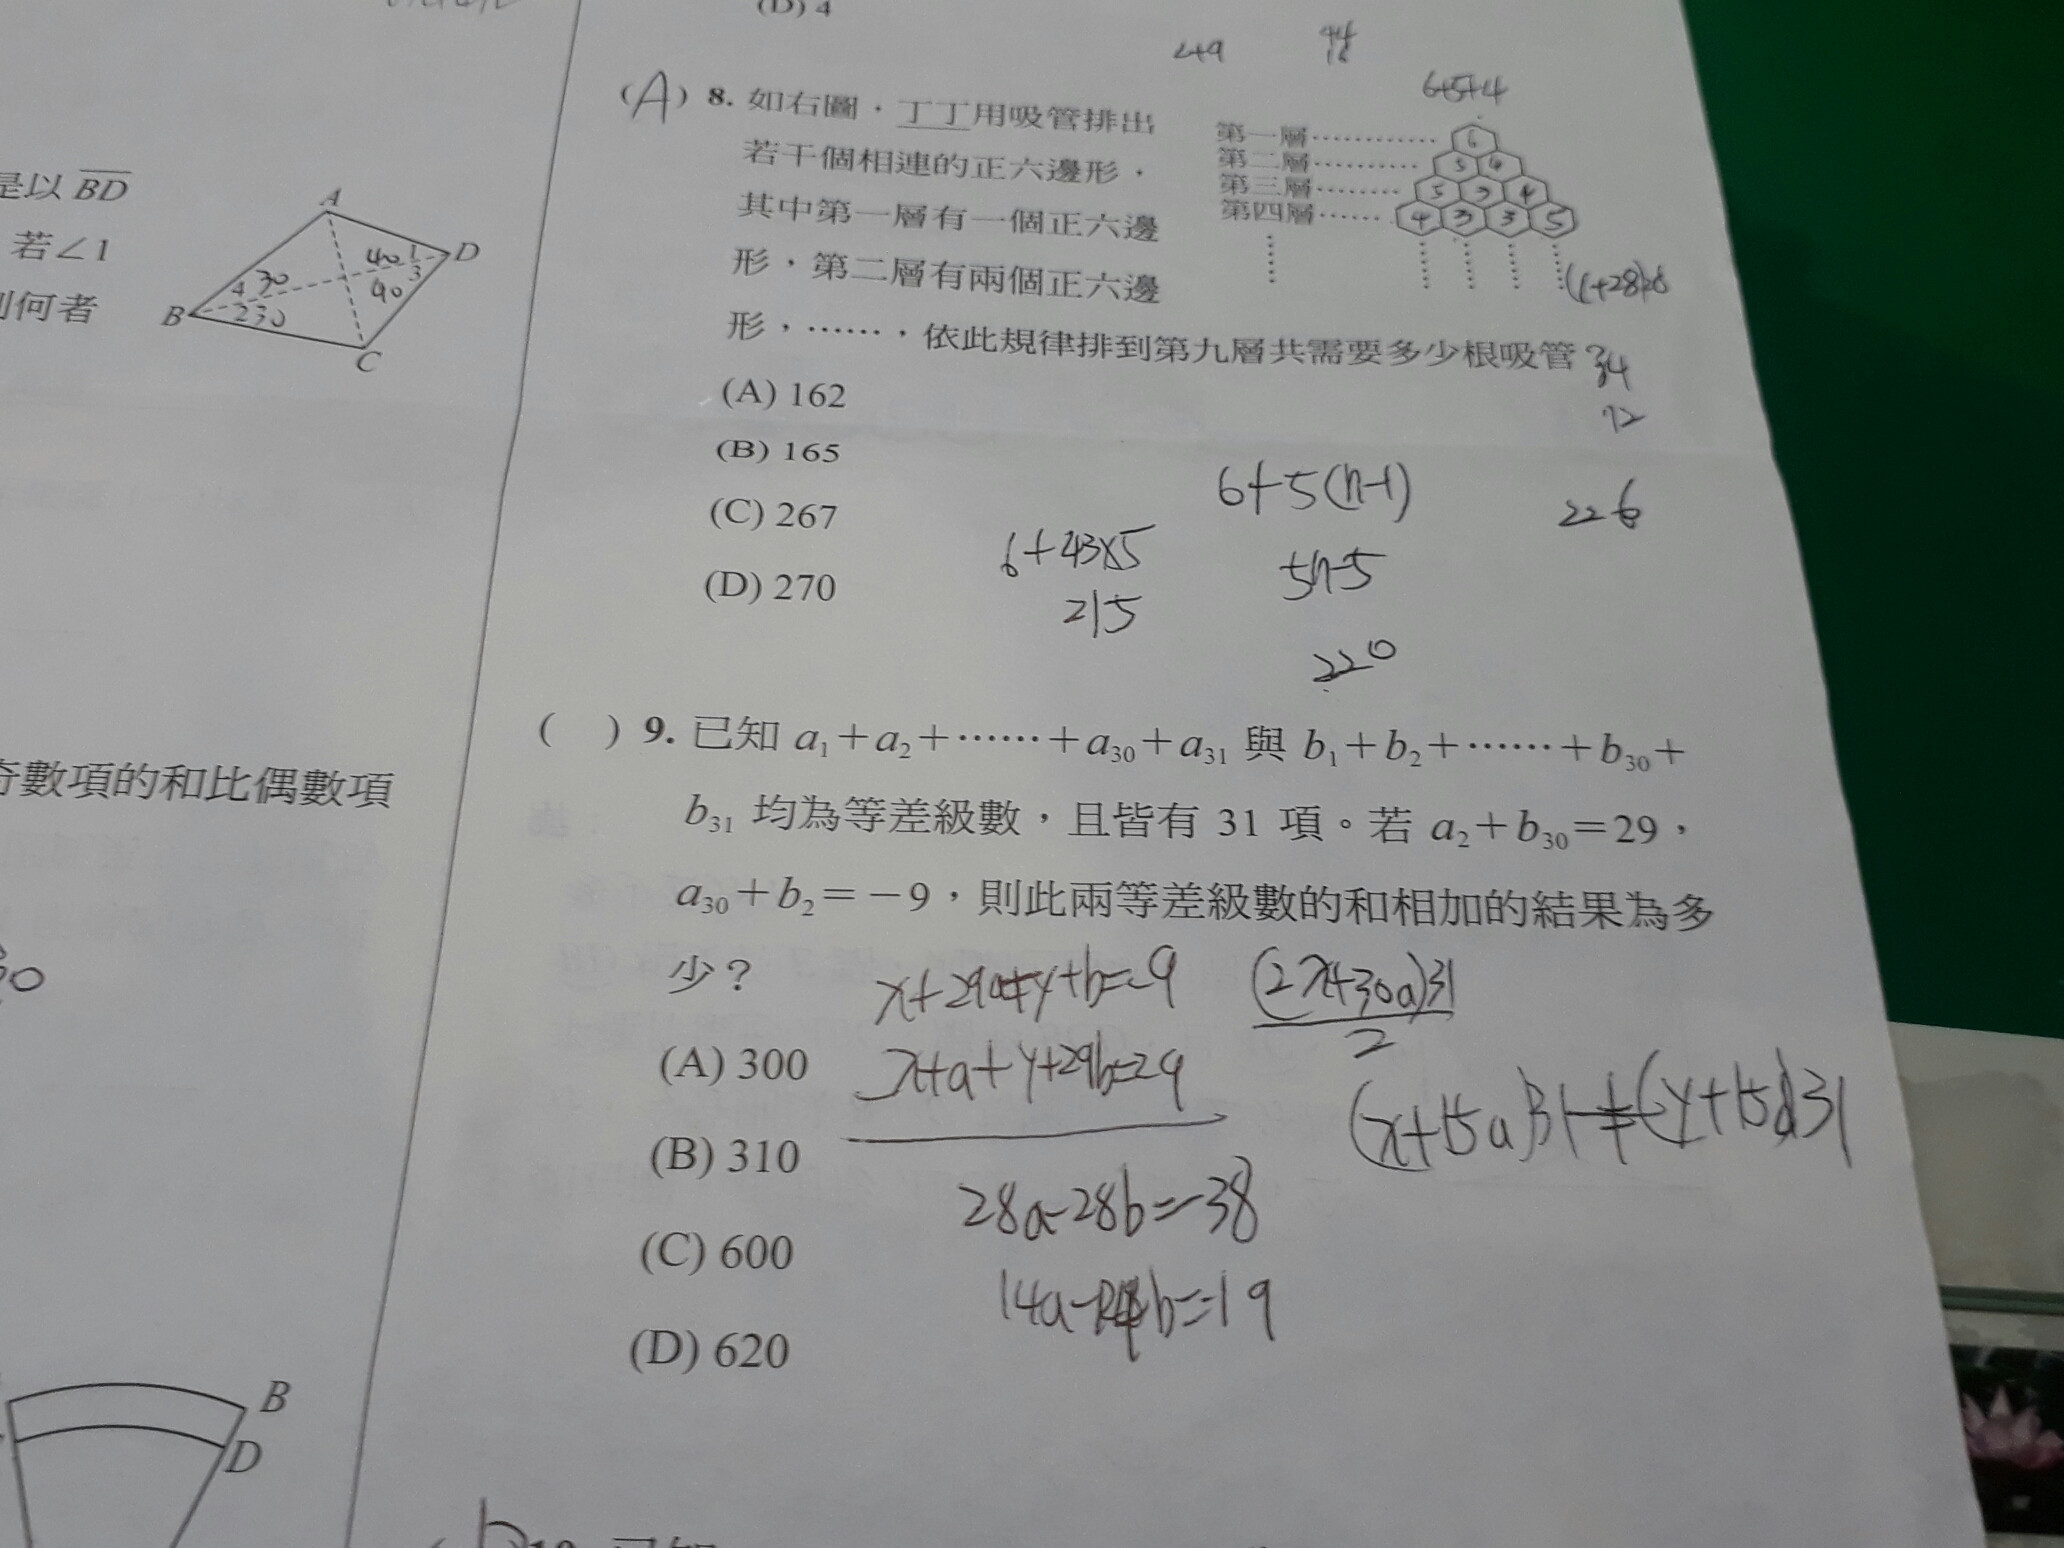 (D) 4
是以 BD
若∠1
何者
A
B
C
D
40 1
3
90
4 30
2 30
奇數項的和比偶數項
B
D
(A) 8. 如右圖，丁丁用吸管排出
若干個相連的正六邊形，
其中第一層有一個正六邊
形，第二層有兩個正六邊
形，……，依此規律排到第九層共需要多少根吸管？
6+5+4
第一層
第二層
第三層
第四層
6
5 4
5 3 4
4 3 3 5
34
72
(A) 162
(B) 165
(C) 267
(D) 270
6+5(n-1)
226
6+43×5
5n-5
215
220
( ) 9. 已知 a₁+a₂+……+a₃₀+a₃₁ 與 b₁+b₂+……+b₃₀+
b₃₁ 均為等差級數，且皆有 31 項。若 a₂+b₃₀=29，
a₃₀+b₂=－9，則此兩等差級數的和相加的結果為多
少？
x+29a+y+b=-9
(2x+30a)31
2
x+a+y+29b=29
(x+15a)31+(y+15b)31
28a-28b=-38
14a-14b=-19
(A) 300
(B) 310
(C) 600
(D) 620